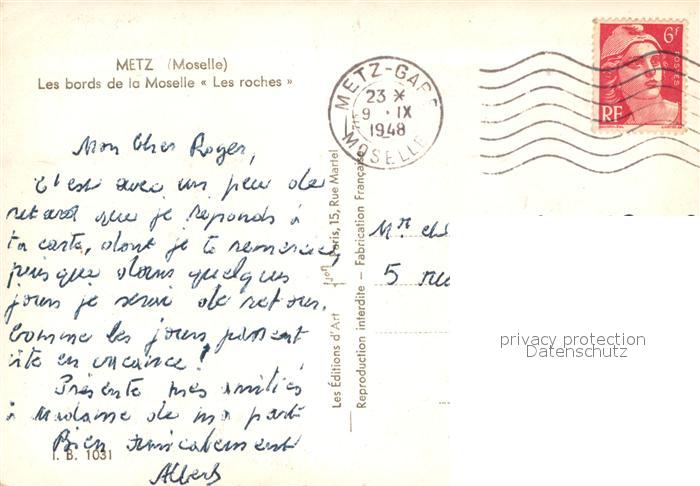 METZ (Moselle)
Les bords de la Moselle « Les roches »
METZ-GARE
23 *
9 · IX
1948
MOSELLE
6f
POSTES
RF
Mon Cher Roger,
C'est avec un peu de
retard que je réponds à
ta carte, dont je te remercie,
puisque dans quelques
jours je serai de retour.
Comme les jours passent
vite en vacance !
Présente mes amitiés
à Madame de ma part
Bien amicalement
Albert
I. B. 1031
Les Éditions d'Art Yvon Paris, 15, Rue Martel
Reproduction interdite - Fabrication Française
Mr
5 rue
privacy protection
Datenschutz